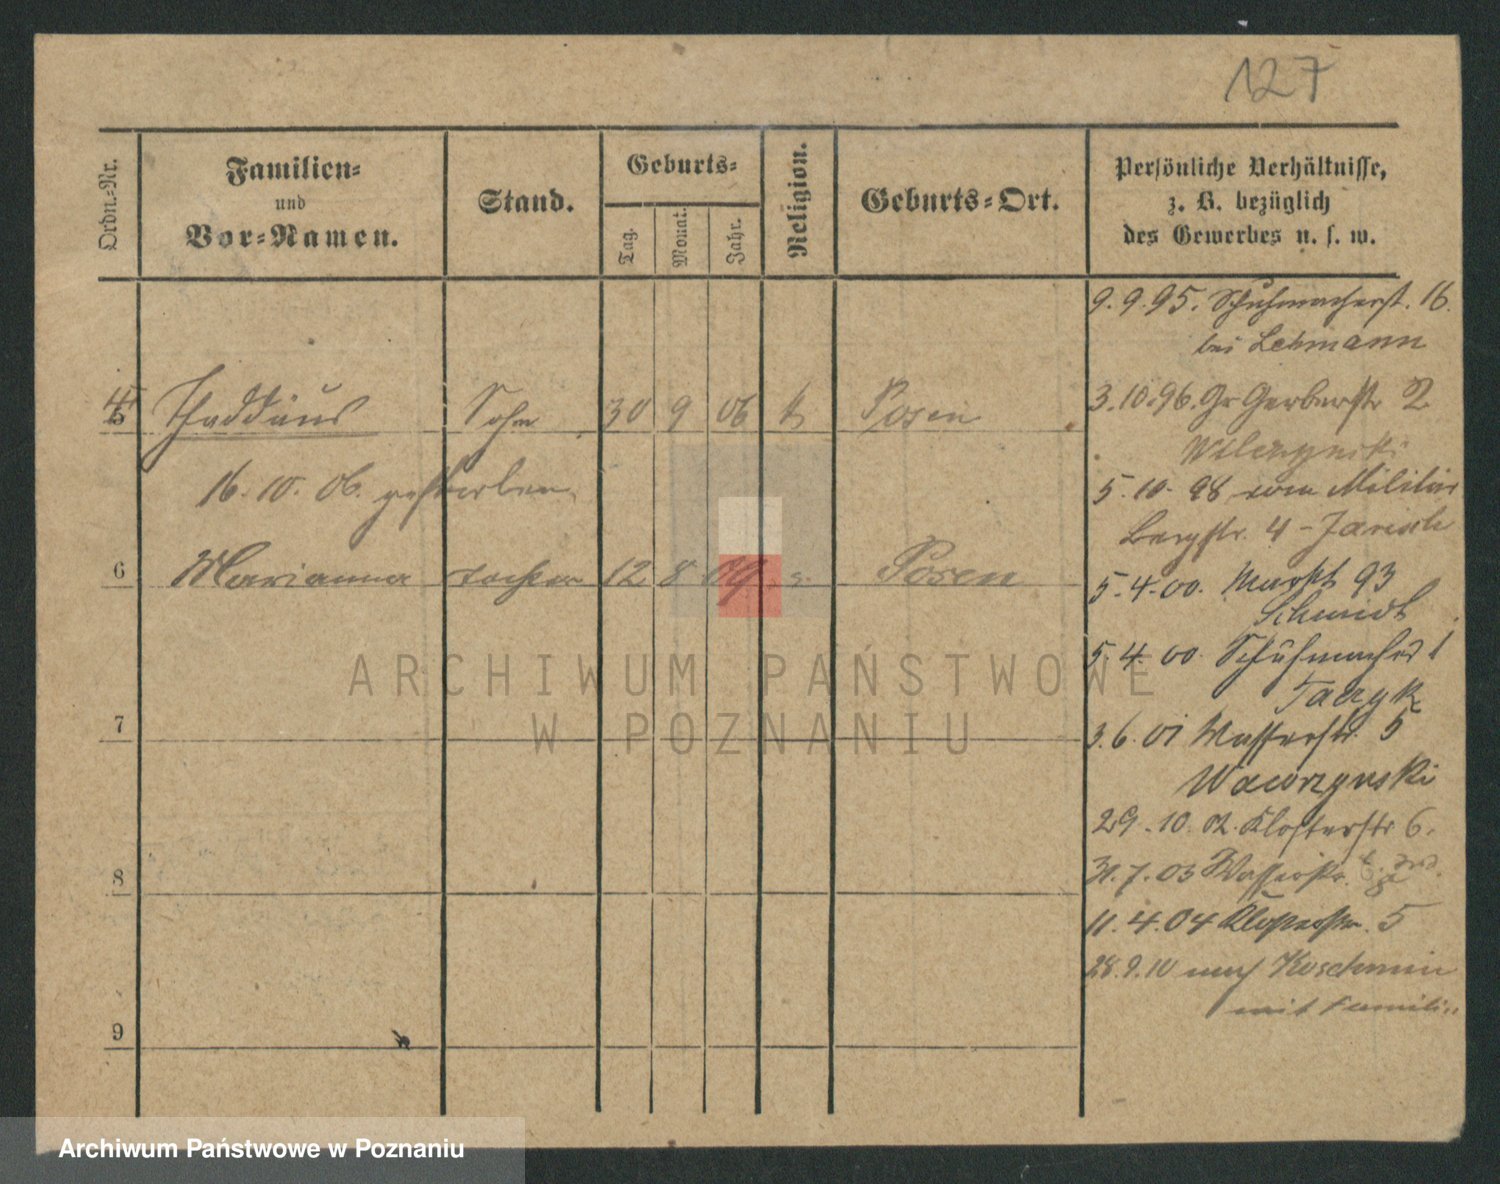 127
Ordn.-Nr.
Familien-
und
Vor-Namen.
Stand.
Geburts-
Tag.
Monat.
Jahr.
Religion.
Geburts-Ort.
Persönliche Verhältnisse,
z. B. bezüglich
des Gewerbes u. s. w.
9. 9. 95. Schuhmacherst. 16.
bei Lehmann
5 Thaddäus Sohn 30 9 06 k Posen
3. 10. 96. Gr Gerberstr 2
16. 10. 06. gestorben.
5. 10. 98 vom Militär
Bergstr. 4 -
6 Marianna Tochter 12 8 09 Posen
5. 4. 00. Markt 93
Schmidt
5. 4. 00. Schuhmacherst 1
Taczyk
7
3. 6. 01 Wasserstr. 5
Wawrzynski
29. 10. 02. Klosterstr 6.
8
31. 7. 03 Wasserstr.
11. 4. 04 Klosterstr. 5
28. 9. 10 nach Koschmin
mit Familie
9
ARCHIWUM PAŃSTWOWE
W POZNANIU
Archiwum Państwowe w Poznaniu